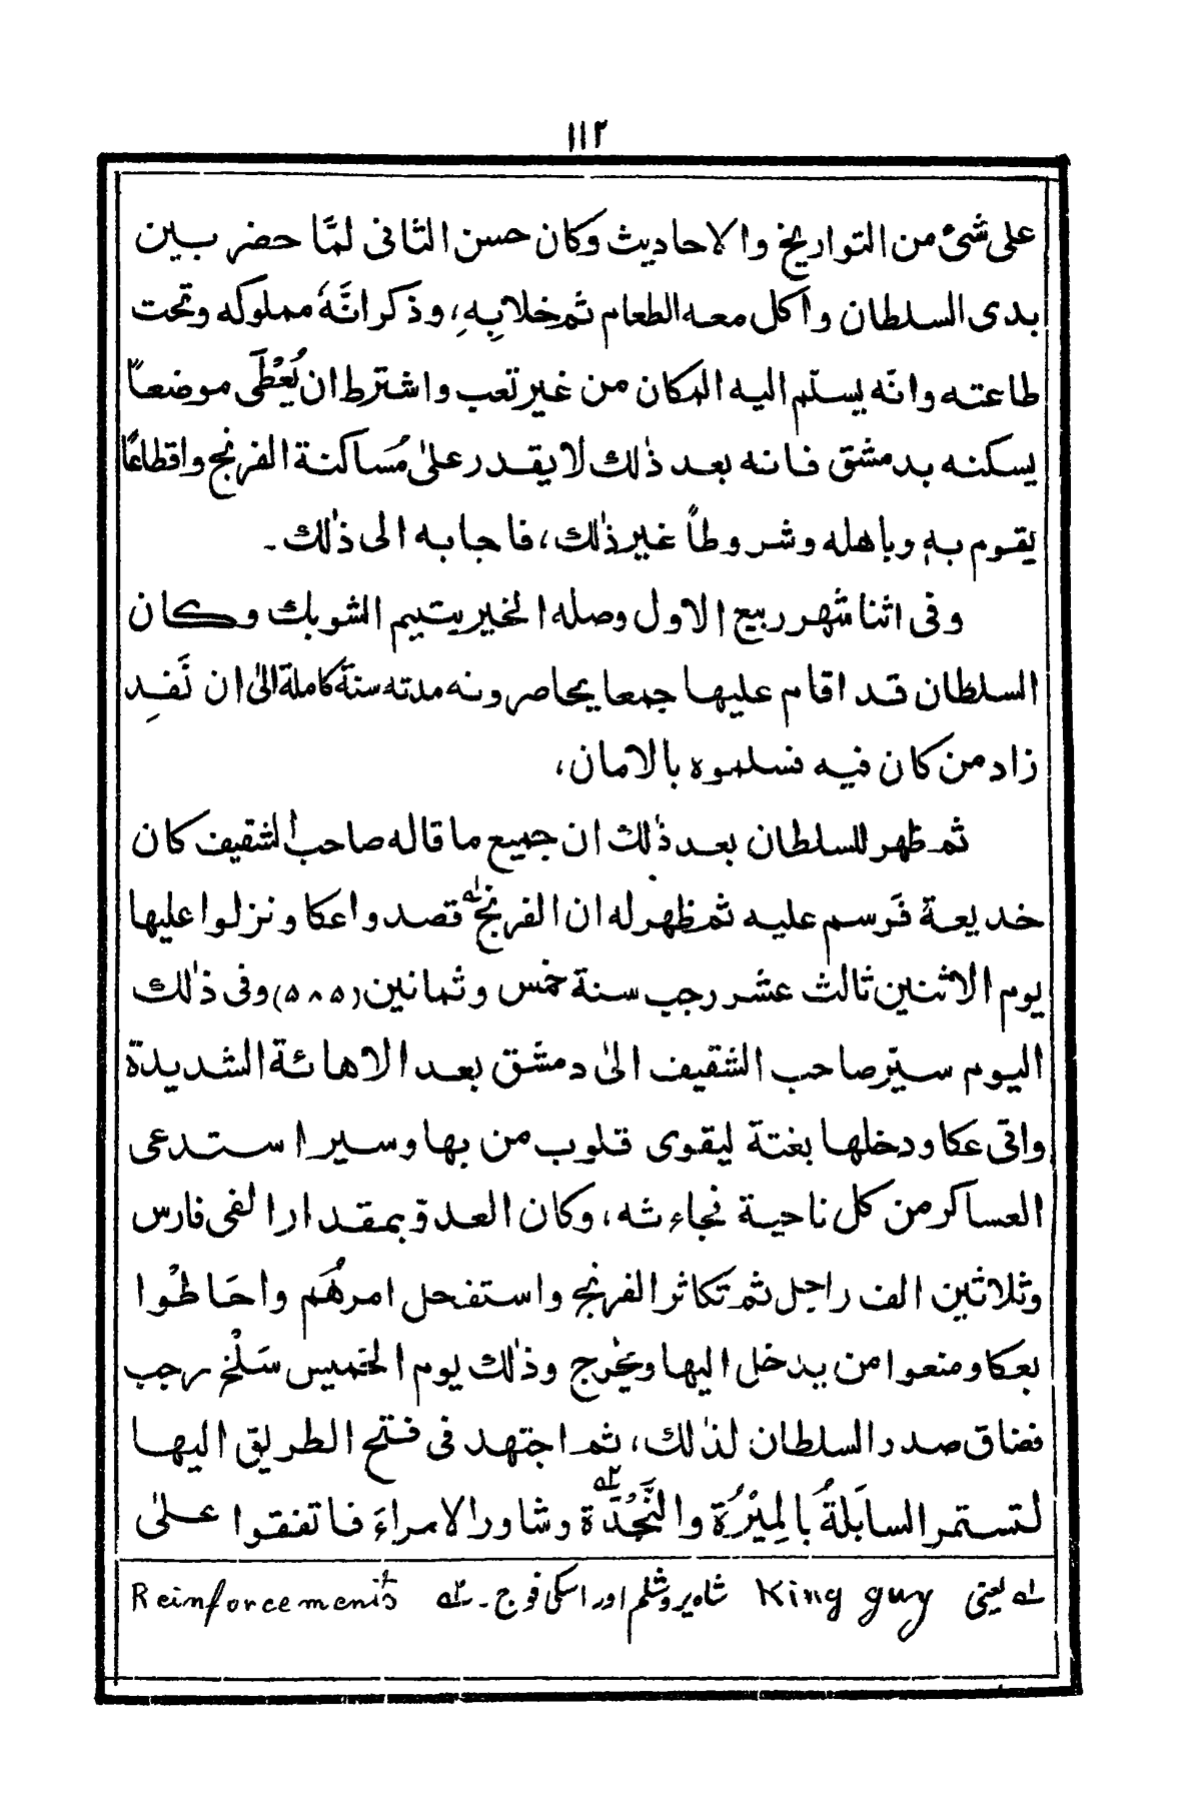 ١١٢
على شئ من التواريخ والاحاديث وكان حسن التانى لمَّا حضر بين
يدى السلطان واكل معه الطعام ثم خلابِهِ، وذكر انَّهٗ مملوكه وتحت
طاعته وانّه يسلّم اليه المكان من غير تعب واشترط ان يُعْطَى موضعاً
يسكنه بدمشق فانه بعد ذٰلك لا يقدر علىٰ مُساكنة الفرنج واقطاعاً
يقوم به وباهله وشروطاً غير ذٰلك، فاجابه الى ذٰلك۔
وفى اثنا شهر ربيع الاول وصله الخير بتيم الشوبك وكان
السلطان قد اقام عليها جمعا يحاصرونه مدته سنة كاملة الىٰ ان نَفِد
زاد من كان فيه فسلموه بالامان،
ثم ظهر للسلطان بعد ذٰلك ان جميع ما قاله صاحب الشقيف كان
خديعة فَرسم عليه ثم ظهر له ان الفرنج ؎۱ قصدوا عكا ونزلوا عليها
يوم الاثنين ثالث عشر رجب سنة خمس وثمانين (٥٨٥) وفى ذٰلك
اليوم سيّر صاحب الشقيف الىٰ دمشق بعد الاهائة الشديدة
واتى عكا ودخلها بغتة ليقوى قلوب من بها وسير استدعى
العساكر من كل ناحية نجاء ثه، وكان العدوّ بمقدار الفى فارس
وثلاثين الف راجل ثم تكاثر الفرنج واستفحل امرهُم واحَاطُوا
بعكا ومنعوا من يدخل اليها ويخرج وذٰلك يوم الخميس سَلْخ رجب
فضاق صدر السلطان لذٰلك، ثم اجتهد فى فتح الطريق اليها
لتستمر السابَلةُ بالمِيْرُة والنَّجُدَّة ؎۲ وشاور الامراءَ فاتفقوا علىٰ
؎۱ یعنی King guy شاہ یروشلم اور اسکی فوج۔ ؎۲ Reinforcements